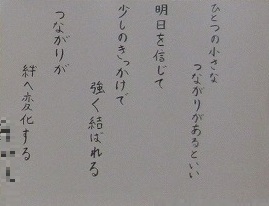 ひとつの小さな
つながりがあるといい
明日を信じて
少しのきっかけで
強く結ばれる
つながりが
絆へ変化する